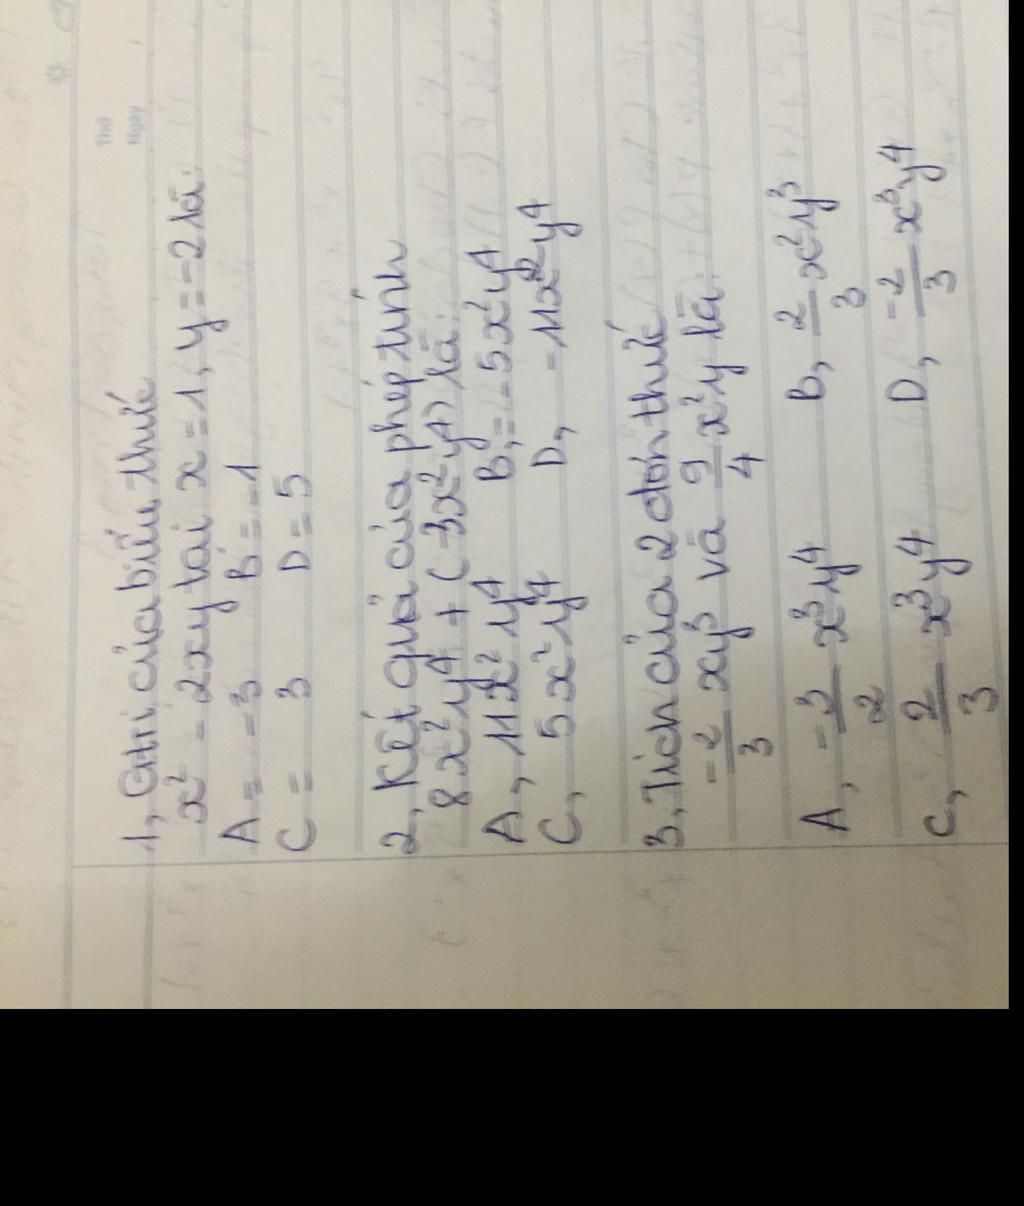 Thứ
Ngày
1, Giá trị của biểu thức
x² - 2xy tại x = 1, y = -2 là:
A = -3 B = -1
C = 3 D = 5
2, Kết quả của phép tính
8x²y⁴ + (-3x²y⁴) là:
A, 11x²y⁴ B, = -5x²y⁴
C, 5x²y⁴ D, -11x²y⁴
3, Tích của 2 đơn thức
-2/3 xy³ và 9/4 x²y là:
A, -3/2 x³y⁴ B, 2/3 x²y³
C, 2/3 x³y⁴ D, -2/3 x³y⁴